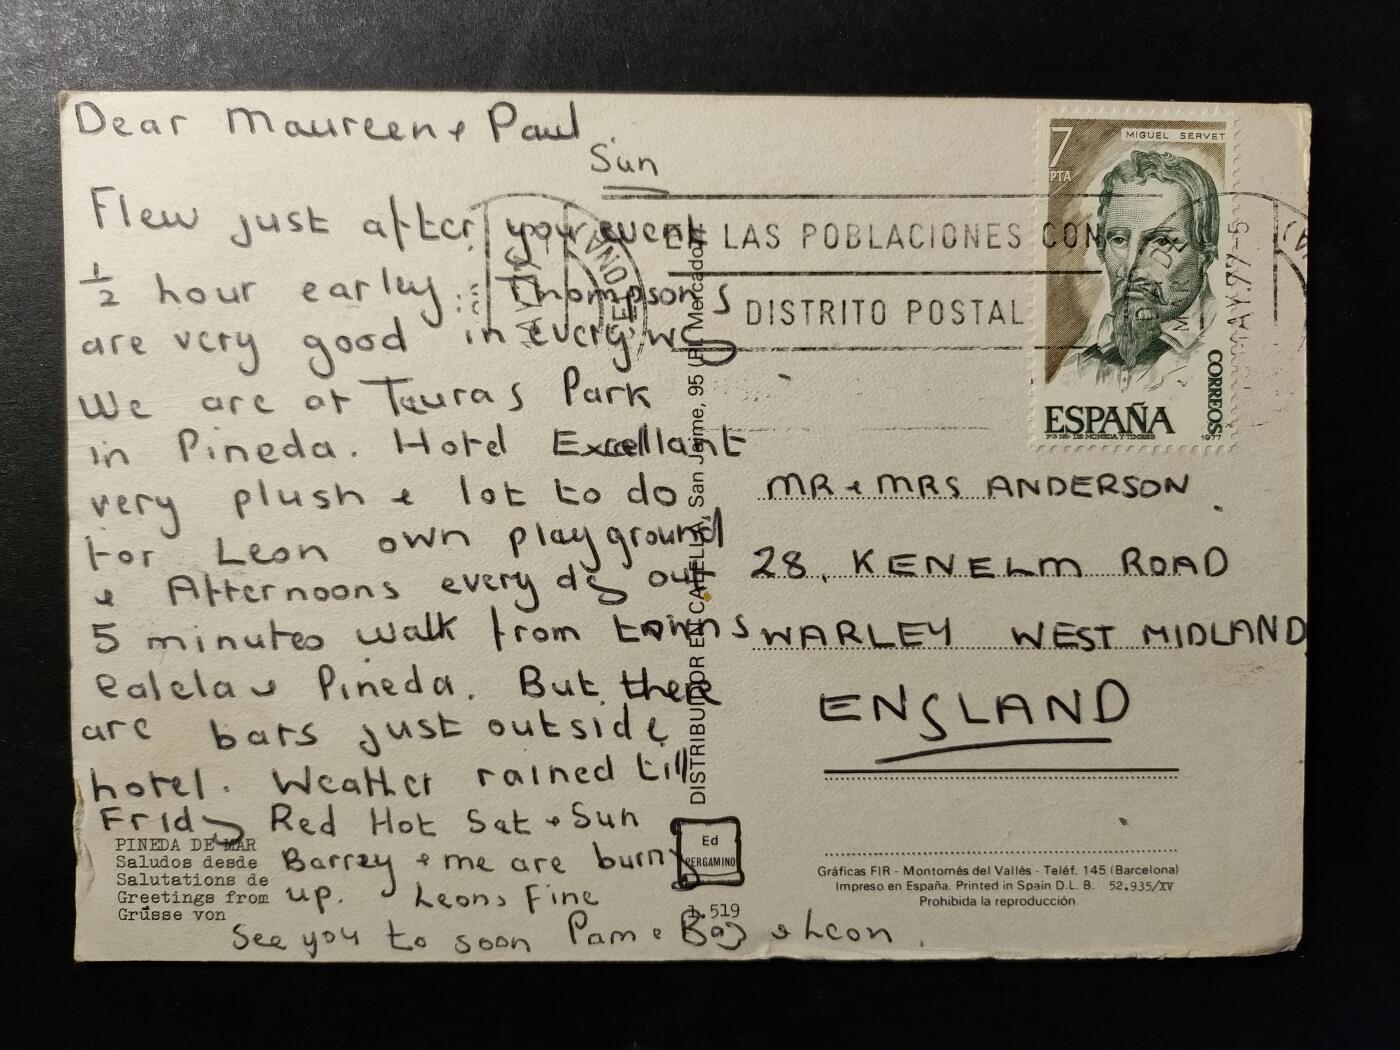 Dear Maureen & Paul
Sun
Flew just after your event
½ hour earley Thompsons
are very good in every way
We are at Tauras Park
in Pineda. Hotel Excellant
very plush & lot to do
for Leon own playground
& Afternoons every day our
5 minutes walk from towns
Calela & Pineda. But there
are bars just outside
hotel. Weather rained till
Friday Red Hot Sat & Sun
Barrey & me are burny
up. Leons Fine
See you to soon Pam & Baz & Leon
PINEDA DE MAR
Saludos desde
Salutations de
Greetings from
Grüsse von
DISTRIBUIDOR EN CALELLA, San Jaime, 95 (Pl. Mercado)
Ed
PERGAMINO
1.519
EN LAS POBLACIONES CON
DISTRITO POSTAL
MAY.77-5
7
PTA
MIGUEL SERVET
ESPAÑA
CORREOS
1977
MR & MRS ANDERSON
28, KENELM ROAD
WARLEY WEST MIDLAND
ENGLAND
Gráficas FIR - Montornés del Vallés - Teléf. 145 (Barcelona)
Impreso en España. Printed in Spain D.L. B. 52.935/XV
Prohibida la reproducción